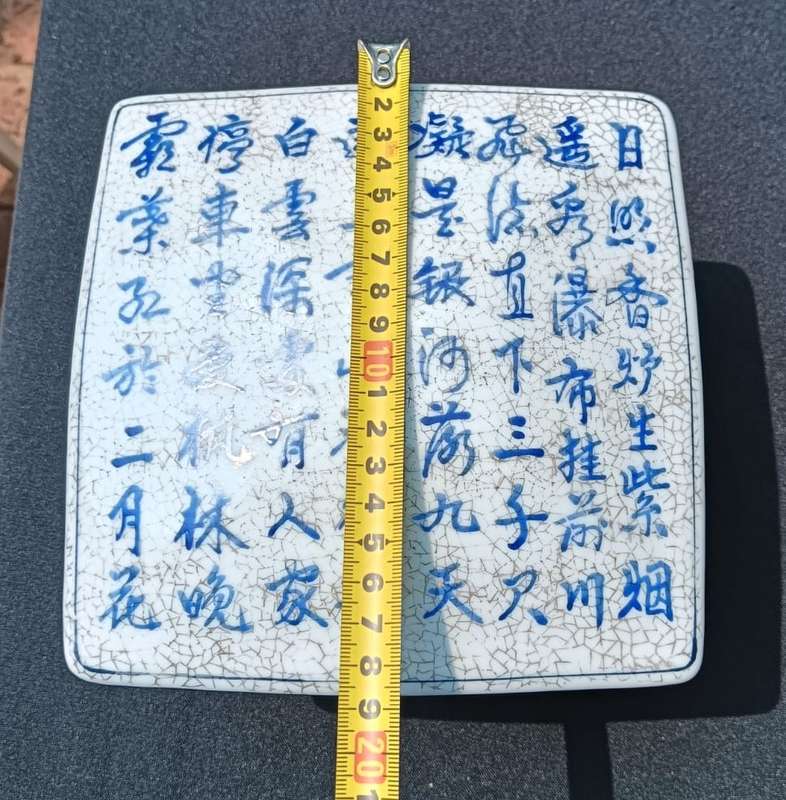 日照香炉生紫烟
遥看瀑布挂前川
飛流直下三千尺
凝是銀河落九天
白雲深處有人家
停車坐愛楓林晚
霜葉红於二月花
2 3 4 5 6 7 8 9 10 1 2 3 4 5 6 7 8 9 20 1